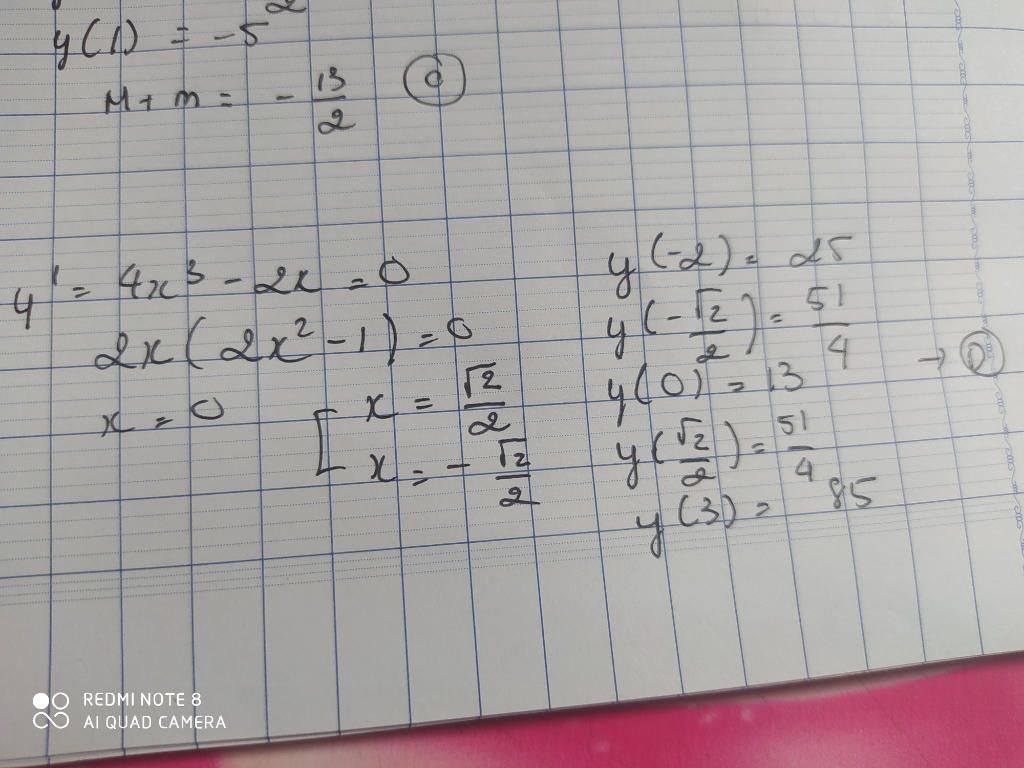 y(1) = -5
M + m = - 13/2 ⓒ
y' = 4x³ - 2x = 0
2x(2x² - 1) = 0
x = 0 [ x = √2/2
x = - √2/2
y(-2) = 25
y(-√2/2) = 51/4
y(0) = 13 → Ⓓ
y(√2/2) = 51/4
y(3) = 85
REDMI NOTE 8
AI QUAD CAMERA